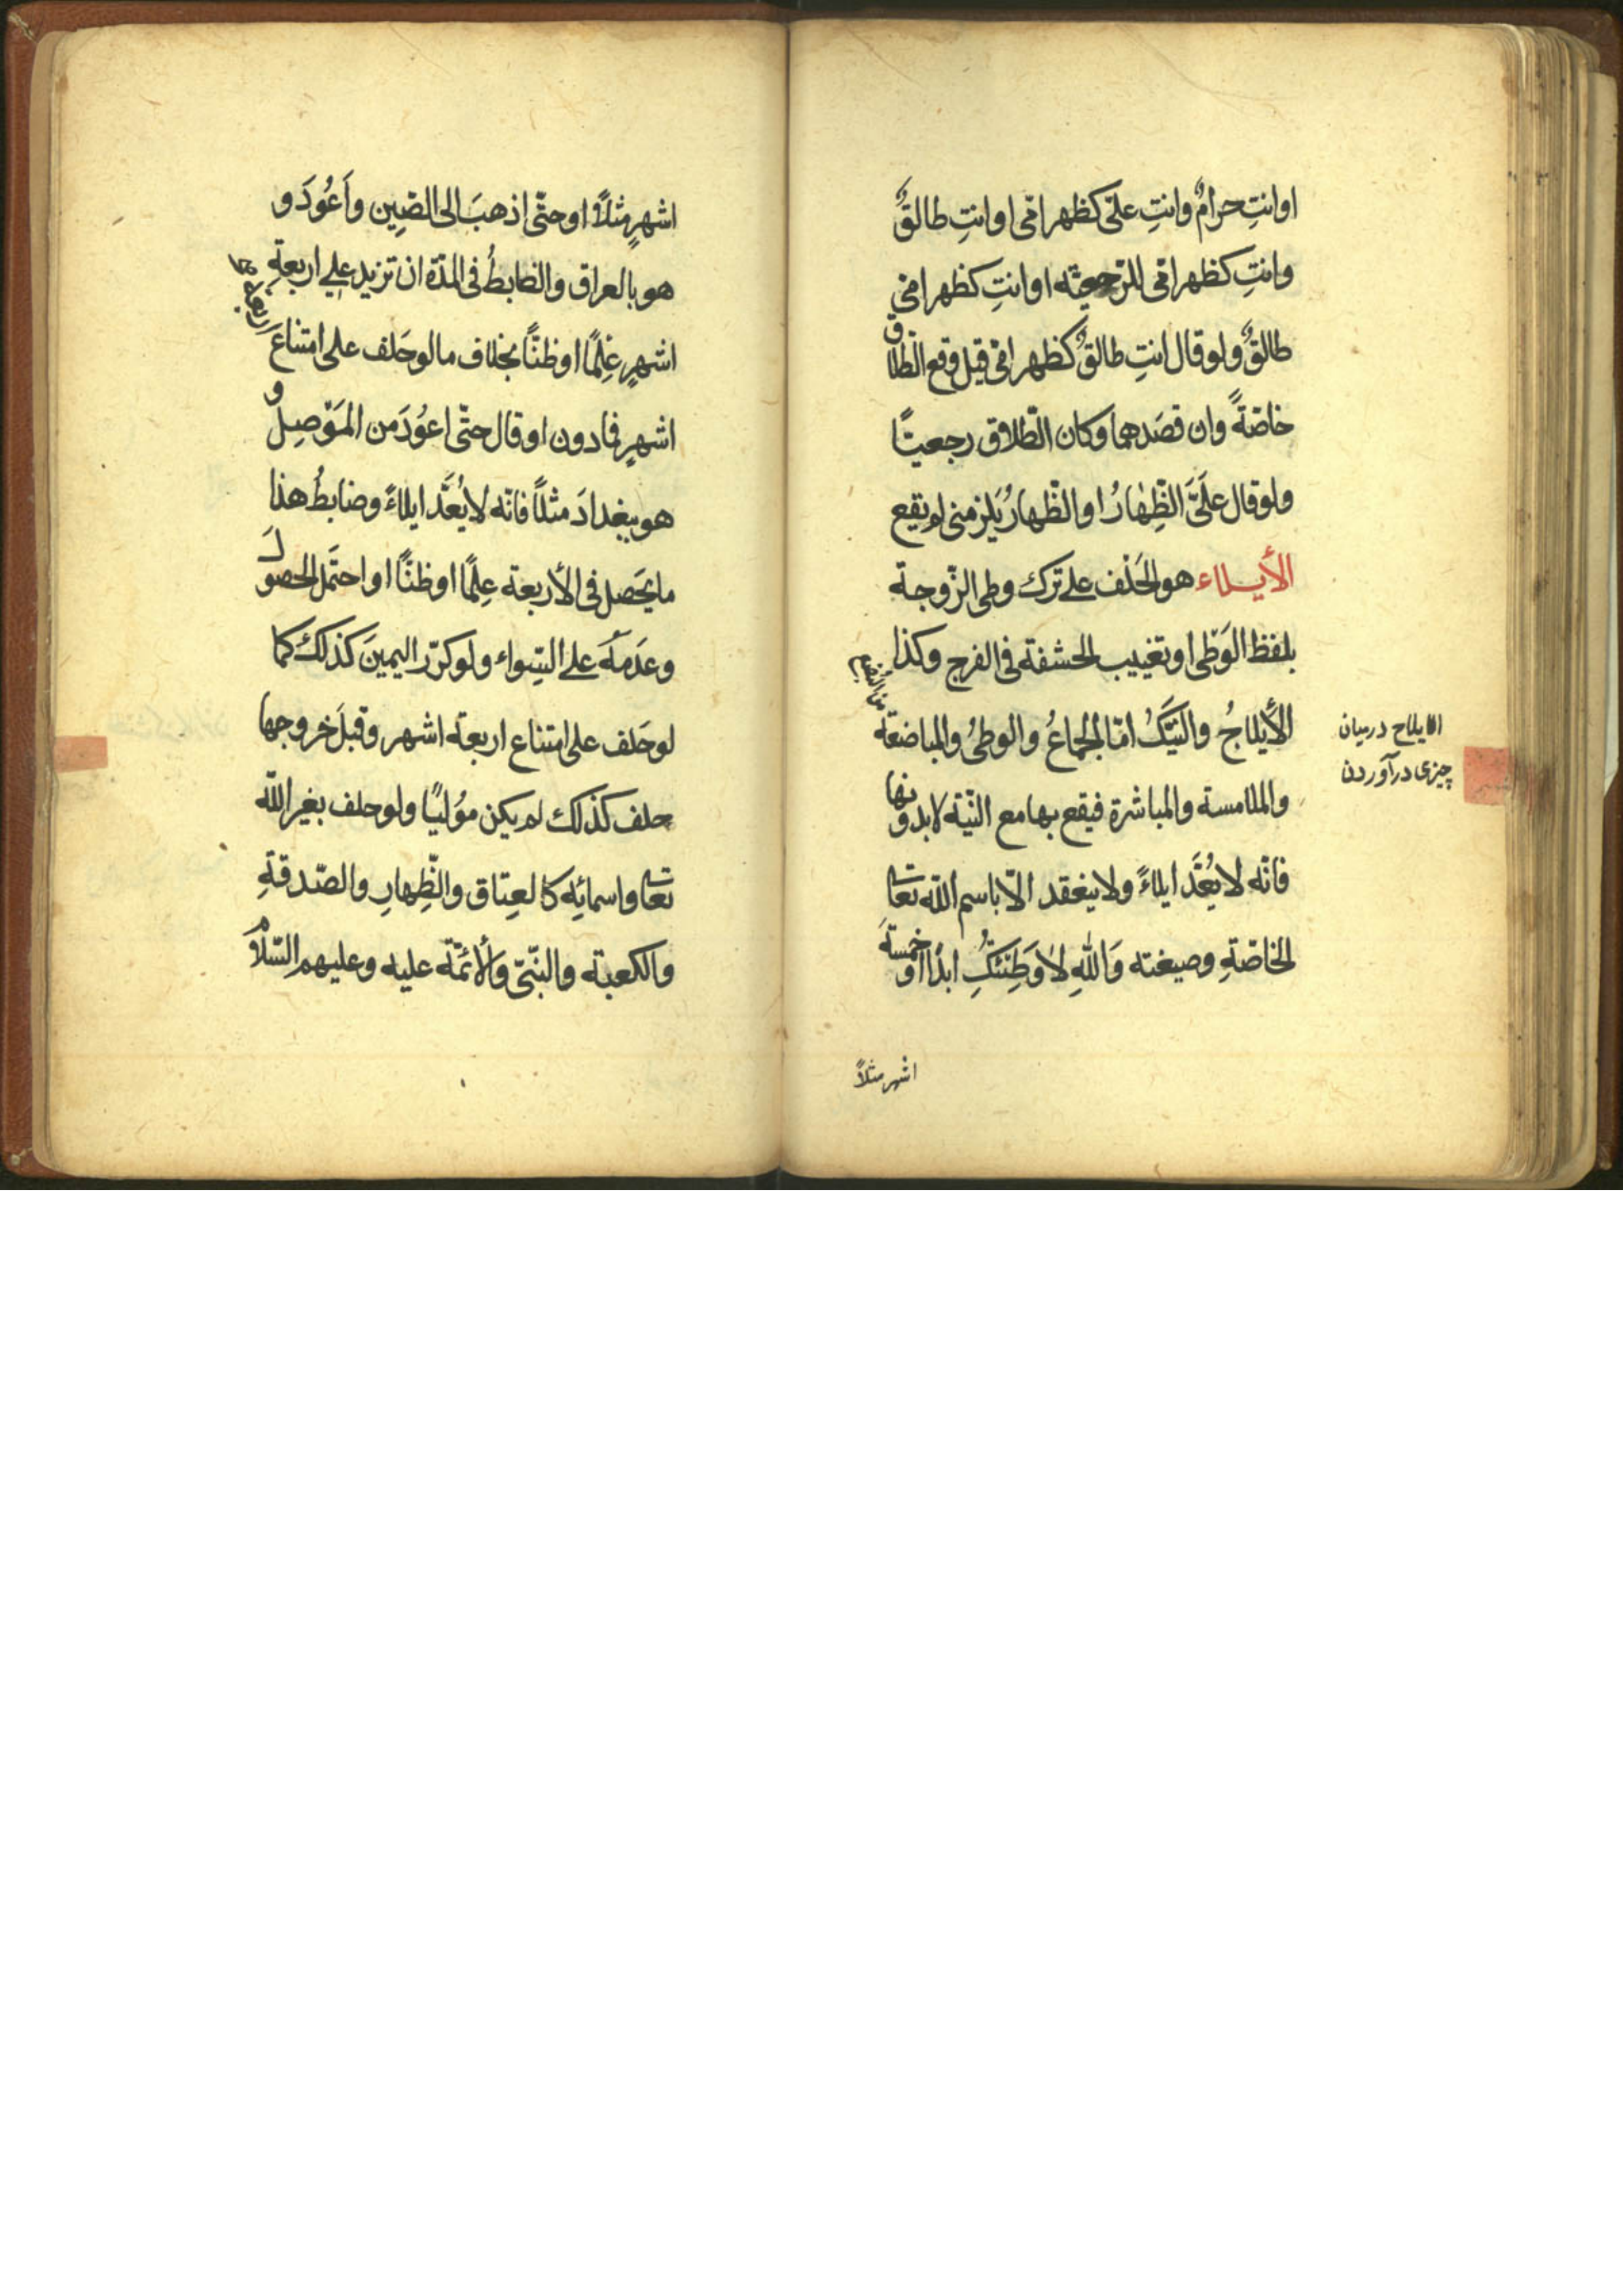 اوانتِ حرامٌ وانتِ علىّ كظهر امّى اوانتِ طالقٌ
وانتِ كظهر امّى للرّجعيّة اوانتِ كظهر امّى
طالقٌ ولو قال انتِ طالقٌ كظهر امّى قيل وقع الطّلاق
خاصّةً وان قصَدهما وكان الطّلاق رجعيًّا
ولو قال علَىَّ الظِّهارُ او الظّهارُ يَلزمنى لم يقع
الأيلاء هو الحَلف على ترك وطى الزّوجة
بلفظ الوَطْى او تغييب الحشفة فى الفرج وكذا
الأيلاجُ والنَّيكُ امّا الجماعُ والوطىُ والمباضعة
والملامسة والمباشرة فيقع بها مع النّيّة لا بدونها
فانّه لا يُعَّد ايلاءً ولا ينعقد الّا باسم اللّه تعا
الخاصّةِ وصيغته وَاللّهِ لا وَطِئتُكِ ابدًا او خمسةَ
اشهر مثلاً
الايلاج درميان
چيزى درآوردن
اشهرٍ مثلاً او حتّى اذهبَ الى الصّين واَعُودَ و
هو بالعراق والضابطُ فى المدّة ان تزيد على اربعةِ
اشهرٍ عِلمًا اوظنًّا بخلاف مالوحَلف على امتناع
اشهرٍ فمادون اوقال حتّى اعوُدَ من المَوْصِل و
هو ببغدادَ مثلاً فانّه لا يُعَّد ايلاءً وضابطُ هذا
ما يحَصل فى الأربعة عِلمًا اوظنًّا او احتَمل الحصولَ
وعدَمهُ على السِّواء ولوكرّر اليمينَ كذلك كما
لوحَلف على امتناع اربعة اشهر وقبلَ خروجها
حلف كذلك لم يكن مؤليًا ولوحلف بغير اللّه
تعا واسمائِه كالعِتاق والظِّهارِ والصّدقةِ
والكعبة والنبّى وألأئمّة عليه وعليهم السّلام